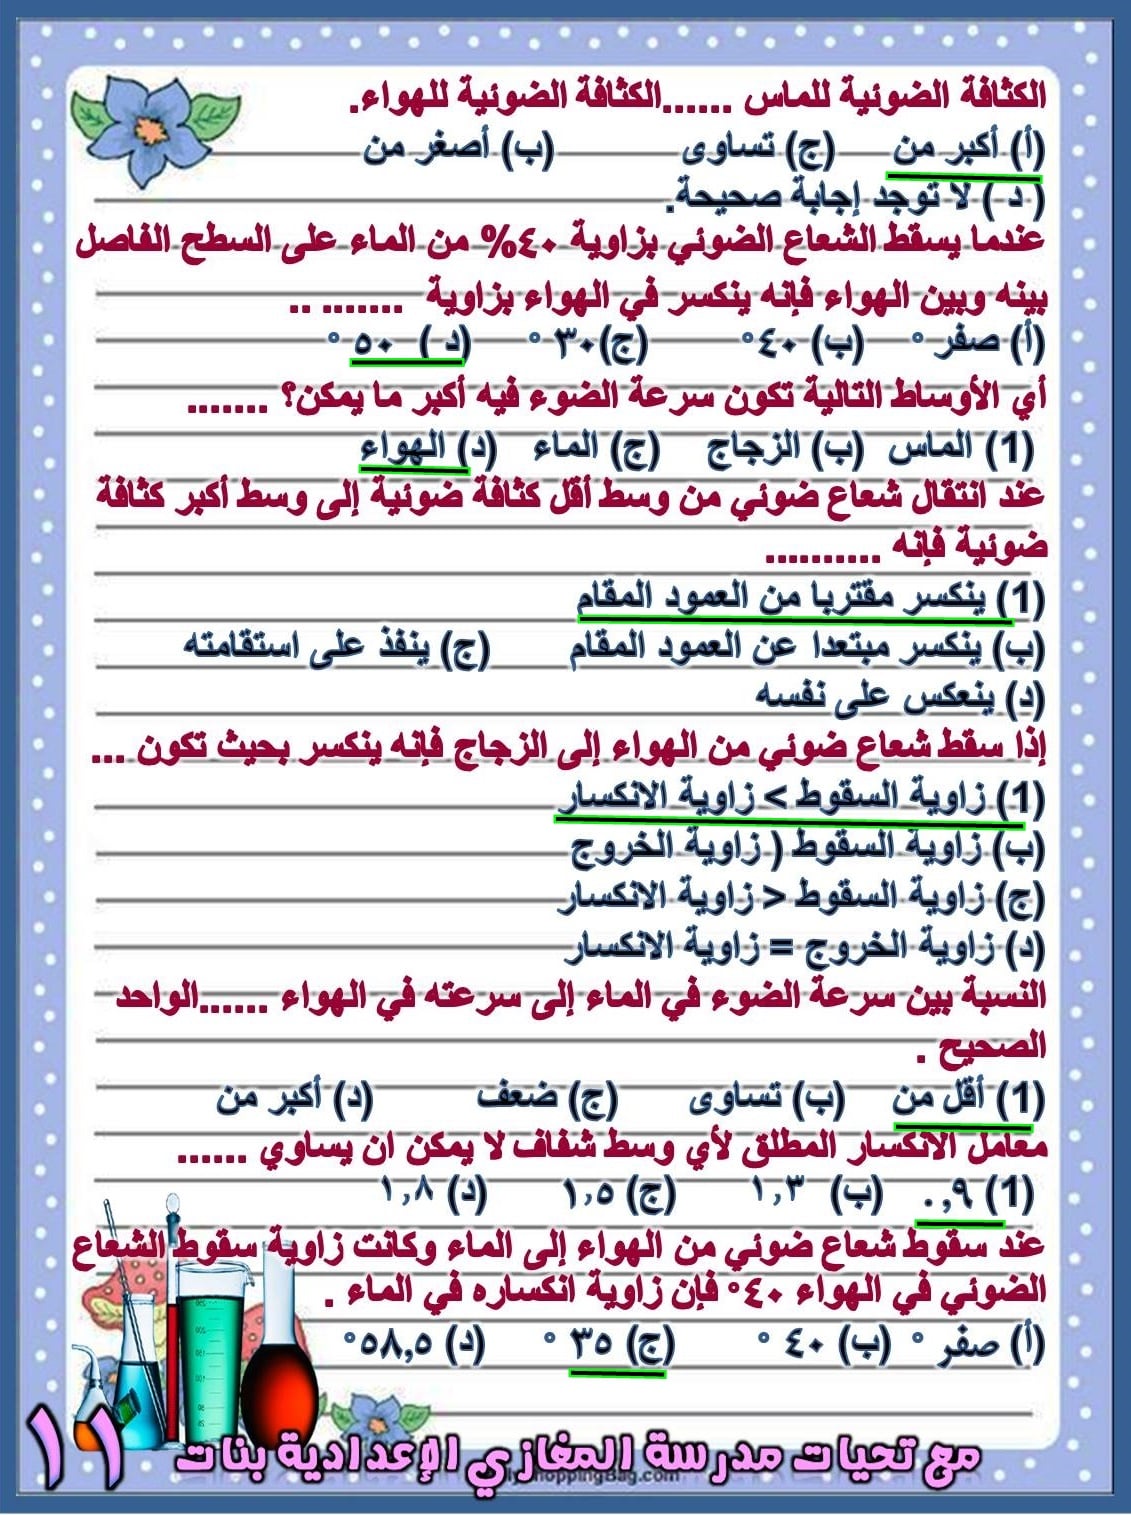 الكثافة الضوئية للماس ......الكثافة الضوئية للهواء.
(أ) أكبر من (ج) تساوى (ب) أصغر من
( د ) لا توجد إجابة صحيحة.
عندما يسقط الشعاع الضوئي بزاوية ٤٠% من الماء على السطح الفاصل
بينه وبين الهواء فإنه ينكسر في الهواء بزاوية ....... ..
(أ) صفر ° (ب) ٤٠° (ج)٣٠ ° (د ) ٥٠ °
أي الأوساط التالية تكون سرعة الضوء فيه أكبر ما يمكن؟ .......
(1) الماس (ب) الزجاج (ج) الماء (د) الهواء
عند انتقال شعاع ضوئي من وسط أقل كثافة ضوئية إلى وسط أكبر كثافة
ضوئية فإنه ..........
(1) ينكسر مقتربا من العمود المقام
(ب) ينكسر مبتعدا عن العمود المقام (ج) ينفذ على استقامته
(د) ينعكس على نفسه
إذا سقط شعاع ضوئي من الهواء إلى الزجاج فإنه ينكسر بحيث تكون ...
(1) زاوية السقوط > زاوية الانكسار
(ب) زاوية السقوط ( زاوية الخروج
(ج) زاوية السقوط < زاوية الانكسار
(د) زاوية الخروج = زاوية الانكسار
النسبة بين سرعة الضوء في الماء إلى سرعته في الهواء ......الواحد
الصحيح .
(1) أقل من (ب) تساوى (ج) ضعف (د) أكبر من
معامل الانكسار المطلق لأي وسط شفاف لا يمكن ان يساوي ......
(1) ٠,٩ (ب) ١,٣ (ج) ١,٥ (د) ١,٨
عند سقوط شعاع ضوئي من الهواء إلى الماء وكانت زاوية سقوط الشعاع
الضوئي في الهواء ٤٠° فإن زاوية انكساره في الماء .
(أ) صفر ° (ب) ٤٠ ° (ج) ٣٥ ° (د) ٥٨,٥°
مع تحيات مدرسة المغازي الإعدادية بنات
١١